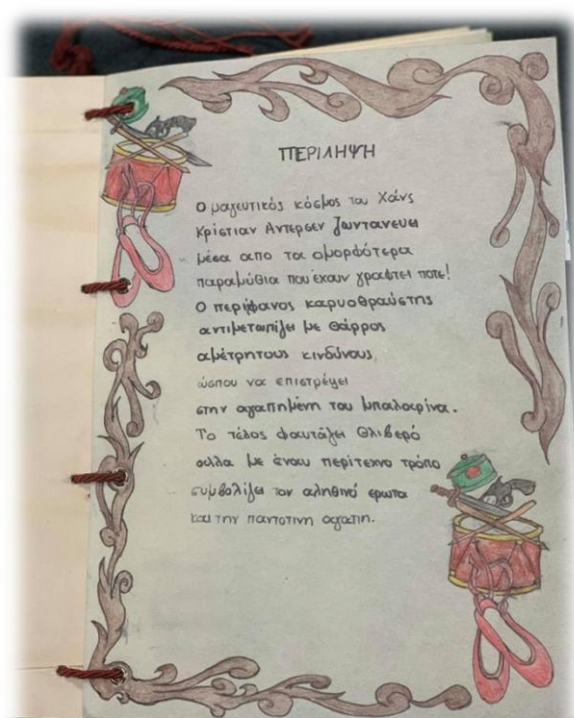 ΠΕΡΙΛΗΨΗ
Ο μαγευτικός κόσμος του Χάνς
Κρίστιαν Αντερσεν ζωντανευει
μέσα απο τα ομορφότερα
παραμύθια που έχουν γραφτει ποτε!
Ο περίφανος καρυοθραύστης
αντιμετωπίζει με θάρρος
αμέτρητους κινδύνους,
ώσπου να επιστρέψει
στην αγαπημένη του μπαλαρίνα.
Το τέλος φαντάζει θλιβερό
αλλα με έναν περίτεχνο τρόπο
συμβολίζει τον αληθινό ερωτα
και την παντοτινη αγαπη.